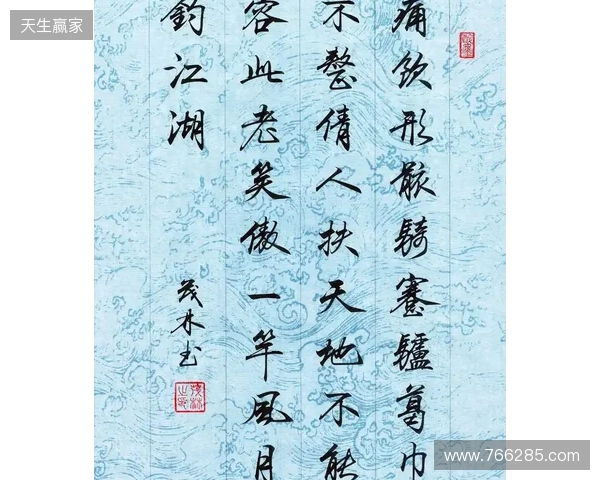 天生赢家
痛飲形骸騎蹇驢葛巾
不整倩人扶天地不能
容此老笑傲一竿風月
釣江湖
茂林书
www.766285.com